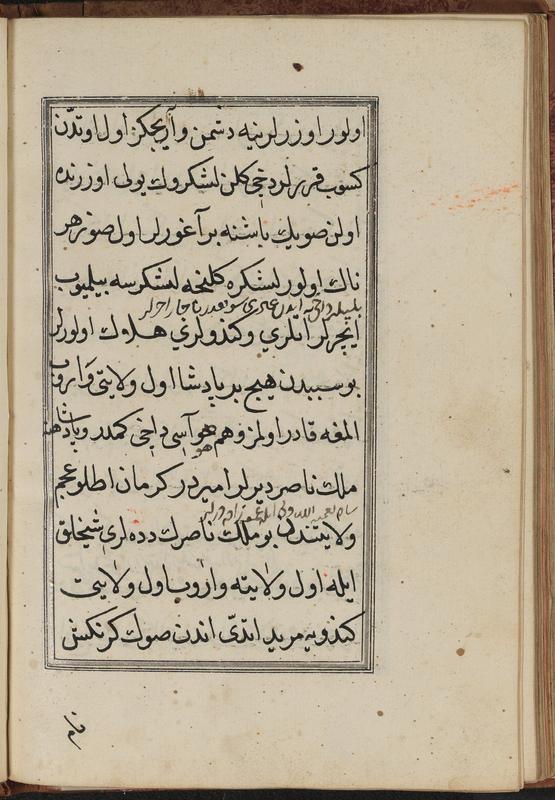 اولور اوزرلرینه دشمن واریجکز اول اوتدن
کسوب قررلر دخی کلن لشکروك یولی اوزرنده
اولن صویك باشنه براغورلر اول صو زهر
ناك اولور لشکره کلنجه لشکرسه بیلمیوب
ایچرلر آنلری وکندولری هلاك اولورلر
بو سببدن هیچ بر پادشا اول ولایتی واروب
المغه قادر اولمز وهم هوآسی داخی کمدر و پادشاهنه
ملك ناصر دیرلر امیردر کرمان اطلو عجم
ولایتندن بو ملك ناصرك دده لری شیخلق
ایله اول ولایته واروب اول ولایتی
کندویه مرید اتدی اندن صوك کرنکش